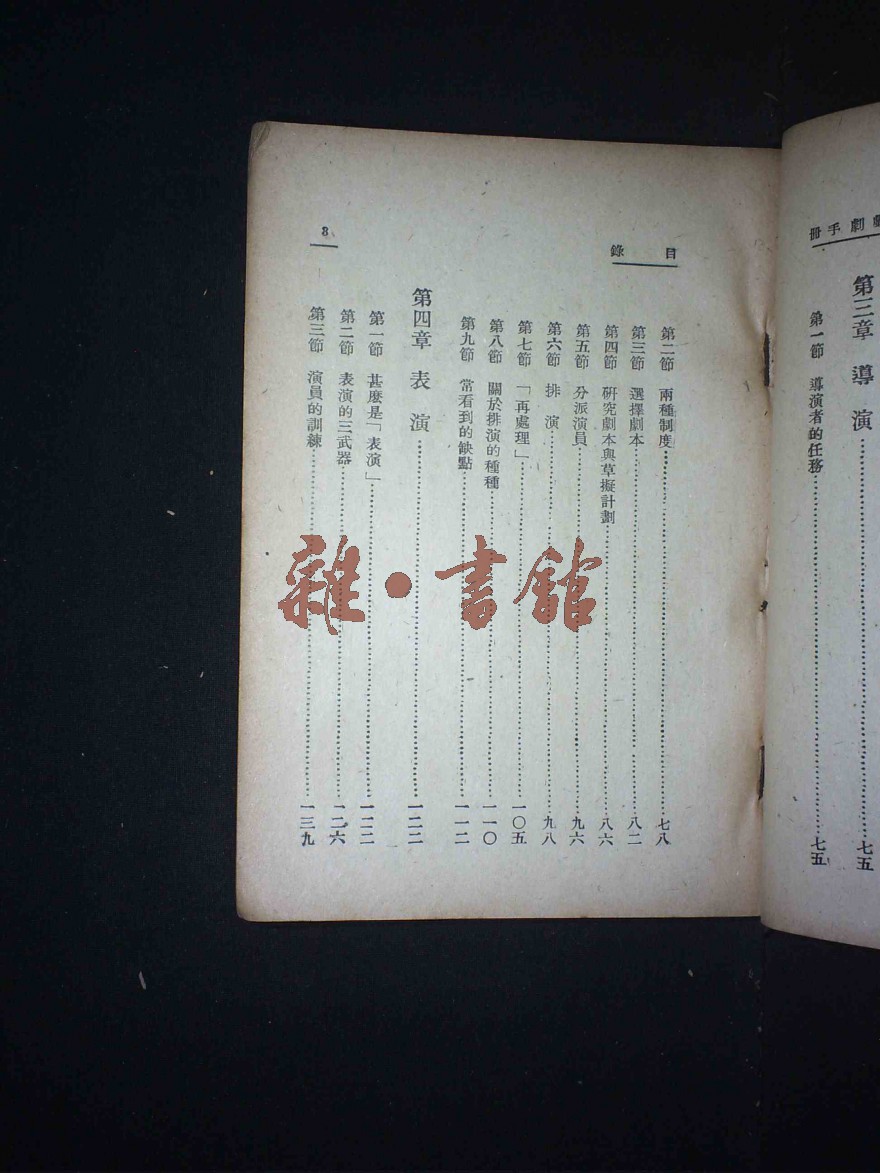 劇手冊
第三章 導演……七五
第一節 導演者的任務……七五
目錄
第二節 兩種制度……七八
第三節 選擇劇本……八二
第四節 研究劇本與草擬計劃……八六
第五節 分派演員……九六
第六節 排演……九八
第七節 「再處理」……一〇五
第八節 關於排演的種種……一一〇
第九節 常看到的缺點……一一二
第四章 表演……一二二
第一節 甚麼是「表演」……一二二
第二節 表演的三武器……一二六
第三節 演員的訓練……一三九
8
雜·書館